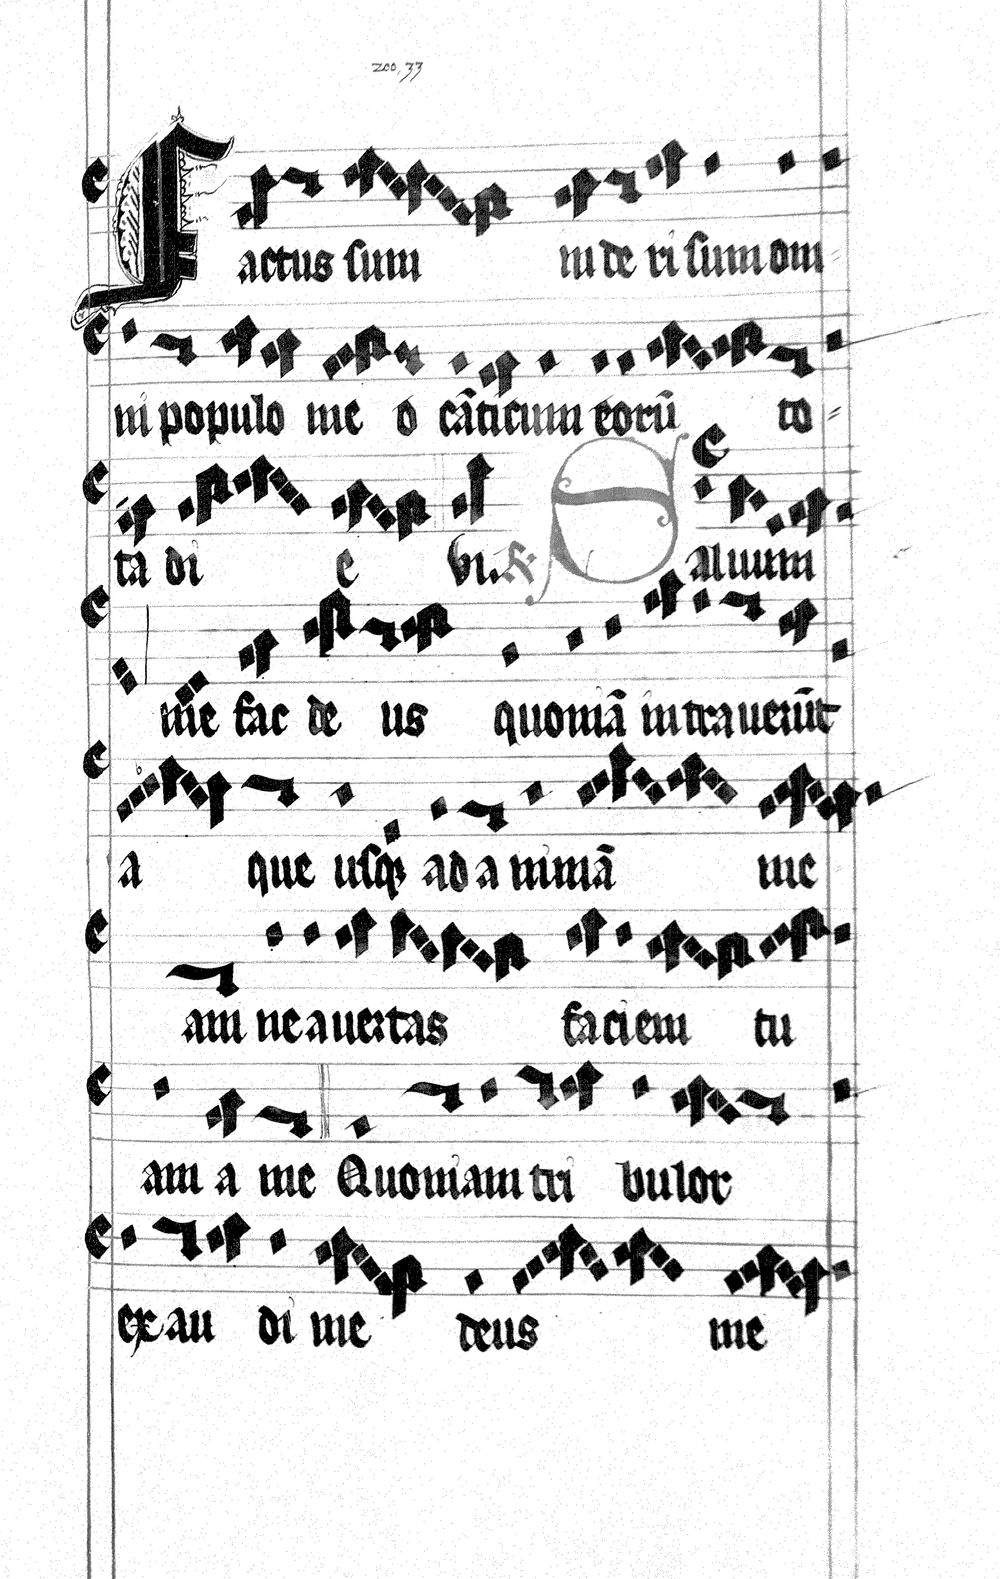 zoo, 33
Factus sum in de ri sum om
ni populo me o cãticum eorũ to
ta di e bus Saluum
me fac de us quoniã intrauerũt
a que usq ad a nimã me
am ne auertas faciem tu
am a me Quoniam tri bulor
ex au di me deus me